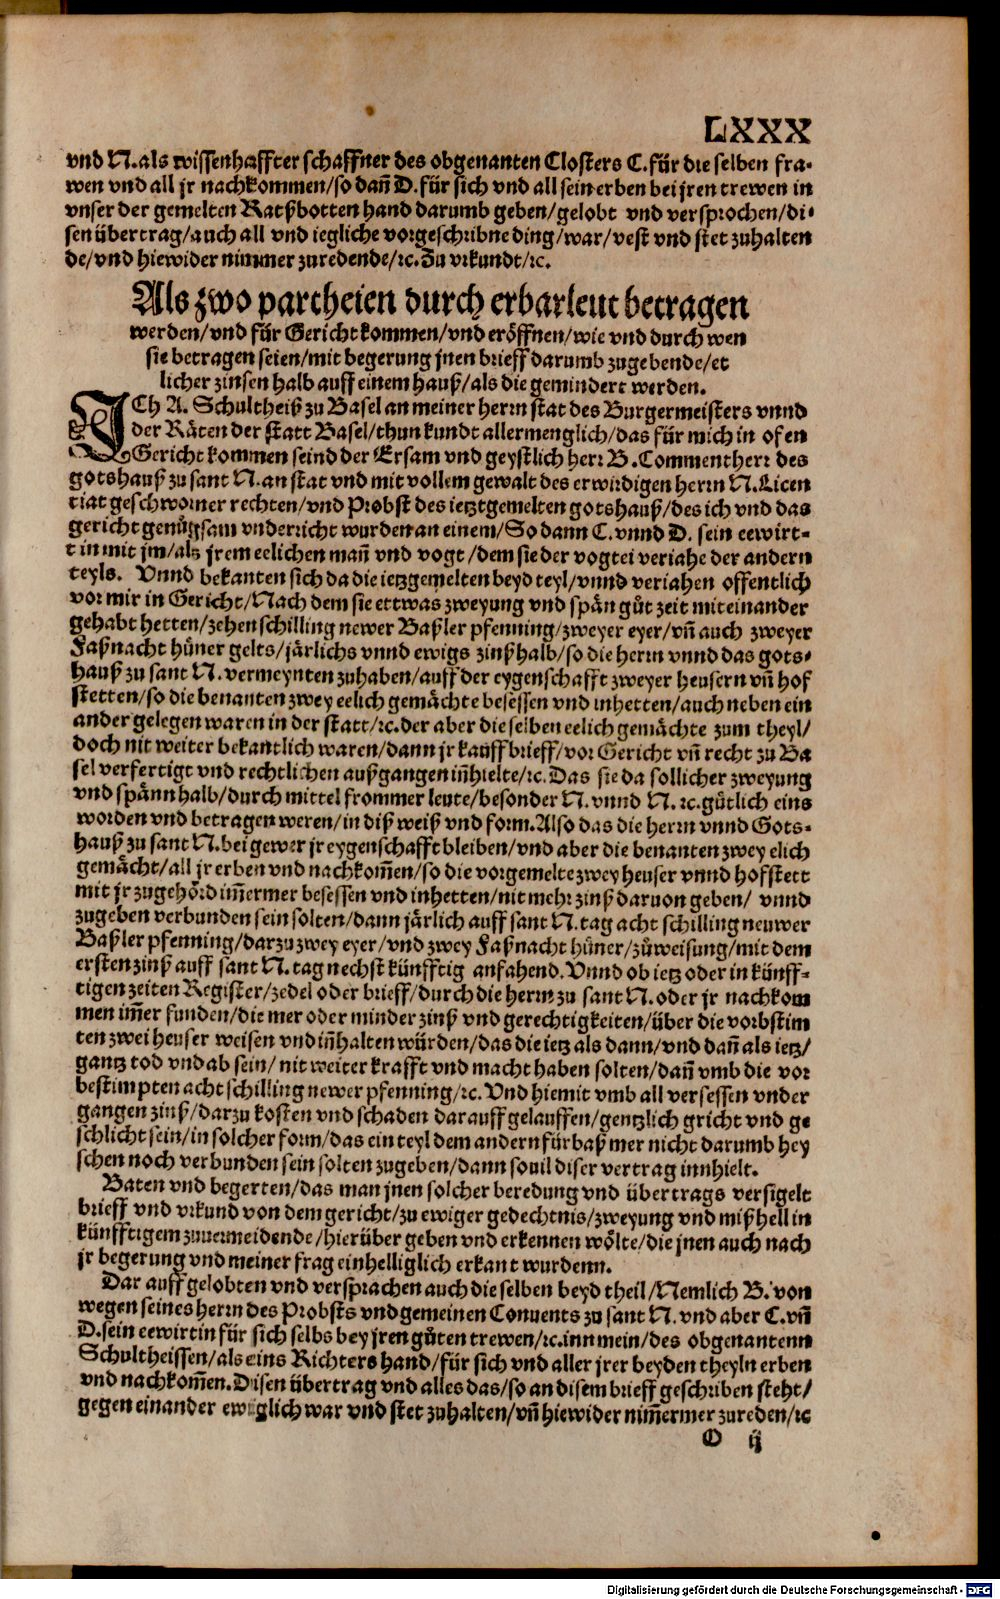 LXXX
vnd N. als wissenhaffter schaffner des obgenanten Closters C. für die selben fra-
wen vnd all jr nachkommen/so dañ D. für sich vnd all sein erben bei jren trewen in
vnser der gemelten Ratßbotten hand darumb geben/gelobt vnd versprochen/di-
sen übertrag/auch all vnd iegliche vorgeschribne ding/war/vest vnd stet zuhalten
de/vnd hiewider nimmer zuredende/ꝛc. Zu vrkundt/ꝛc.
Als zwo partheien durch erbarleut betragen
werden/vnd für Gericht kommen/vnd eröffnen/wie vnd durch wen
sie betragen seien/mit begerung jnen brieff darumb zugebende/et
licher zinsen halb auff einem hauß/als die gemindert werden.
ICh A. Schultheiß zu Basel an meiner herrn stat des Burgermeisters vnnd
der Räten der statt Basel/thun kundt allermenglich/das für mich in ofen
Gericht kommen seind der Ersam vnd geystlich herr B. Commentherr des
gotshauß zu sant N. an stat vnd mit vollem gewalt des erwirdigen herrn N. Licen
tiat geschworner rechten/vnd Probst des ietztgemelten gotshauß/des ich vnd das
gericht genůgsam vnderricht wurden an einem/So dann C. vnnd D. sein eewirt-
tin mit jm/als jrem eelichen mañ vnd vogt/dem sie der vogtei veriahe der andern
teyls. Vnnd bekanten sich da die ietzgemelten beyd teyl/vnnd veriahen offentlich
vor mir in Gericht/Nach dem sie ettwas zweyung vnd spän gůt zeit miteinander
gehabt hetten/zehen schilling newer Baßler pfenning/zweyer eyer/vñ auch zweyer
Faßnacht hüner gelts/järlichs vnnd ewigs zinß halb/so die herrn vnnd das gots-
hauß zu sant N. vermeynten zuhaben/auff der eygenschafft zweyer heusern vñ hof
stetten/so die benanten zwey eelich gemächte besessen vnd inhetten/auch neben ein
ander gelegen waren in der statt/ꝛc. der aber die selben eelich gemächte zum theyl/
doch nit weiter bekantlich waren/dann jr kauffbrieff/vor Gericht vñ recht zu Ba
sel verfertigt vnd rechtlichen außgangen iñhielte/ꝛc. Das sie da sollicher zweyung
vnd spänn halb/durch mittel frommer leute/besonder N. vnnd N. ꝛc. gütlich eins
worden vnd betragen weren/in diß weiß vnd form. Also das die herrn vnnd Gots-
hauß zu sant N. bei gewer jr eygenschafft bleiben/vnd aber die benanten zwey elich
gemächt/all jr erben vnd nachkom̃en/so die vorgemelte zwey heuser vnnd hofstett
mit jr zugehörd im̃ermer besessen vnd inhetten/nit mehr zinß daruon geben/ vnnd
zugeben verbunden sein solten/dann järlich auff sant N. tag acht schilling neuwer
Baßler pfenning/darzu zwey eyer/vnd zwey Faßnacht hüner/zůweisung/mit dem
ersten zinß auff sant N. tag nechst künfftig anfahend. Vnnd ob ietz oder in künff-
tigen zeiten Register/zedel oder brieff/durch die herrn zu sant N. oder jr nachkom
men im̃er funden/die mer oder minder zinß vnd gerechtigkeiten/über die vorbstim
ten zwei heuser weisen vnd iñhalten würden/das die ietz als dann/vnd dañ als ietz/
gantz tod vnd ab sein/ nit weiter krafft vnd macht haben solten/dañ vmb die vor
bestimpten acht schilling newer pfenning/ꝛc. Vnd hiemit vmb all versessen vnder
gangen zinß/darzu kosten vnd schaden darauff gelauffen/gentzlich gricht vnd ge
schlicht sein/in solcher form/das ein teyl dem andern fürbaß mer nicht darumb hey
schen noch verbunden sein solten zugeben/dann souil diser vertrag innhielt.
Baten vnd begerten/das man jnen solcher beredung vnd übertrags versigelt
brieff vnd vrkund von dem gericht/zu ewiger gedechtnis/zweyung vnd mißhell in
künfftigem zuuermeidende/hierüber geben vnd erkennen wölte/die jnen auch nach
jr begerung vnd meiner frag einhelliglich erkant wurdenn.
Dar auff gelobten vnd versprachen auch die selben beyd theil/Nemlich B. von
wegen seines herrn des Probsts vnd gemeinen Conuents zu sant N. vnd aber C. vñ
D. sein eewirtin für sich selbs bey jren gůten trewen/ꝛc. inn mein/des obgenantenn
Schultheissen/als eins Richters hand/für sich vnd aller jrer beyden theyln erben
vnd nachkom̃en. Disen übertrag vnd alles das/so an disem brieff geschriben steht/
gegen einander ewiglich war vnd stet zuhalten/vñ hiewider nim̃ermer zureden/ꝛc
O ij
Digitalisierung gefördert durch die Deutsche Forschungsgemeinschaft - DFG